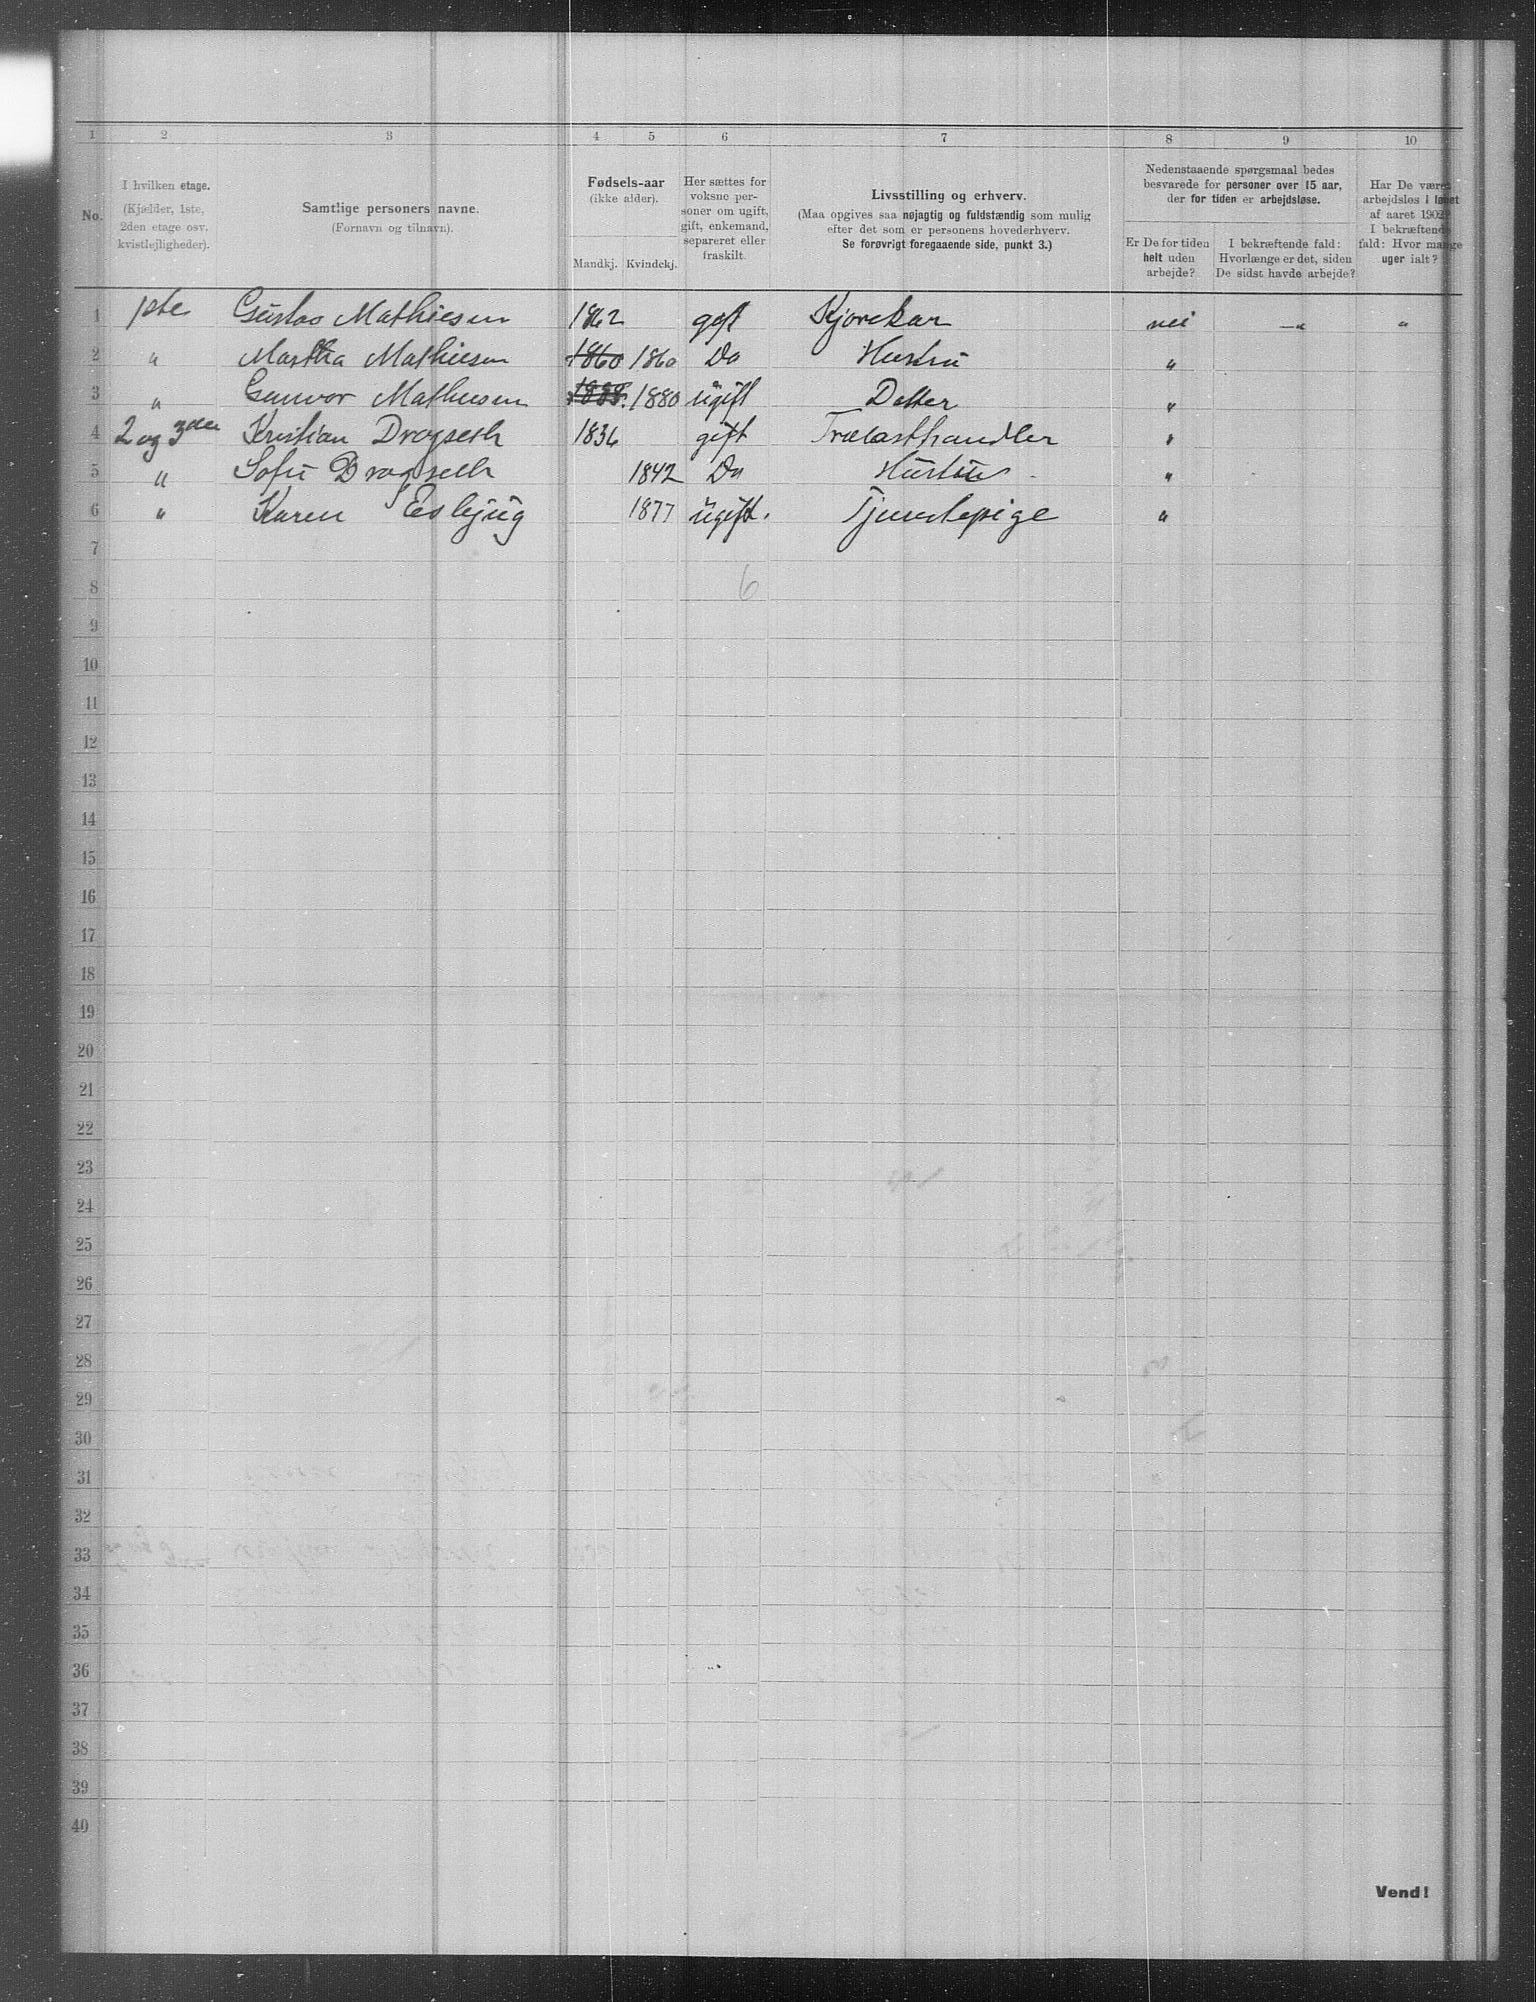 1 2 3 4 5 6 7 8 9 10
No.
I hvilken etage.
(Kjælder, 1ste,
2den etage osv.
kvistlejligheder).
Samtlige personers navne.
(Fornavn og tilnavn).
Fødsels-aar
(ikke alder).
Mandkj. Kvindekj.
Her sættes for
voksne per-
soner om ugift,
gift, enkemand,
separeret eller
fraskilt.
Livsstilling og erhverv.
(Maa opgives saa nøjagtig og fuldstændig som mulig
efter det som er personens hovederhverv.
Se forøvrigt foregaaende side, punkt 3.)
Nedenstaaende spørgsmaal bedes
besvarede for personer over 15 aar,
der for tiden er arbejdsløse.
Er De for tiden
helt uden
arbejde?
I bekræftende fald:
Hvorlænge er det, siden
De sidst havde arbejde?
Har De været
arbejdsløs i løbet
af aaret 1902?
I bekræftende
fald: Hvor mange
uger ialt?
1 1ste Gustav Mathiesen 1862 gift Kjørekar nei — " "
2 " Martha Mathiesen 1860 1860 Do Hustru "
3 " Gunvor Mathiesen 1888. 1880 ugift Datter "
4 2 og 3die Kristian Dragseth 1836 gift Trælasthandler "
5 " Sofie Dragseth 1842 Do Hustru "
6 " Karen Esbjug 1877 ugift. Tjenestepige "
7
8 6
9
10
11
12
13
14
15
16
17
18
19
20
21
22
23
24
25
26
27
28
29
30
31
32
33
34
35
36
37
38
39
40
Vend!